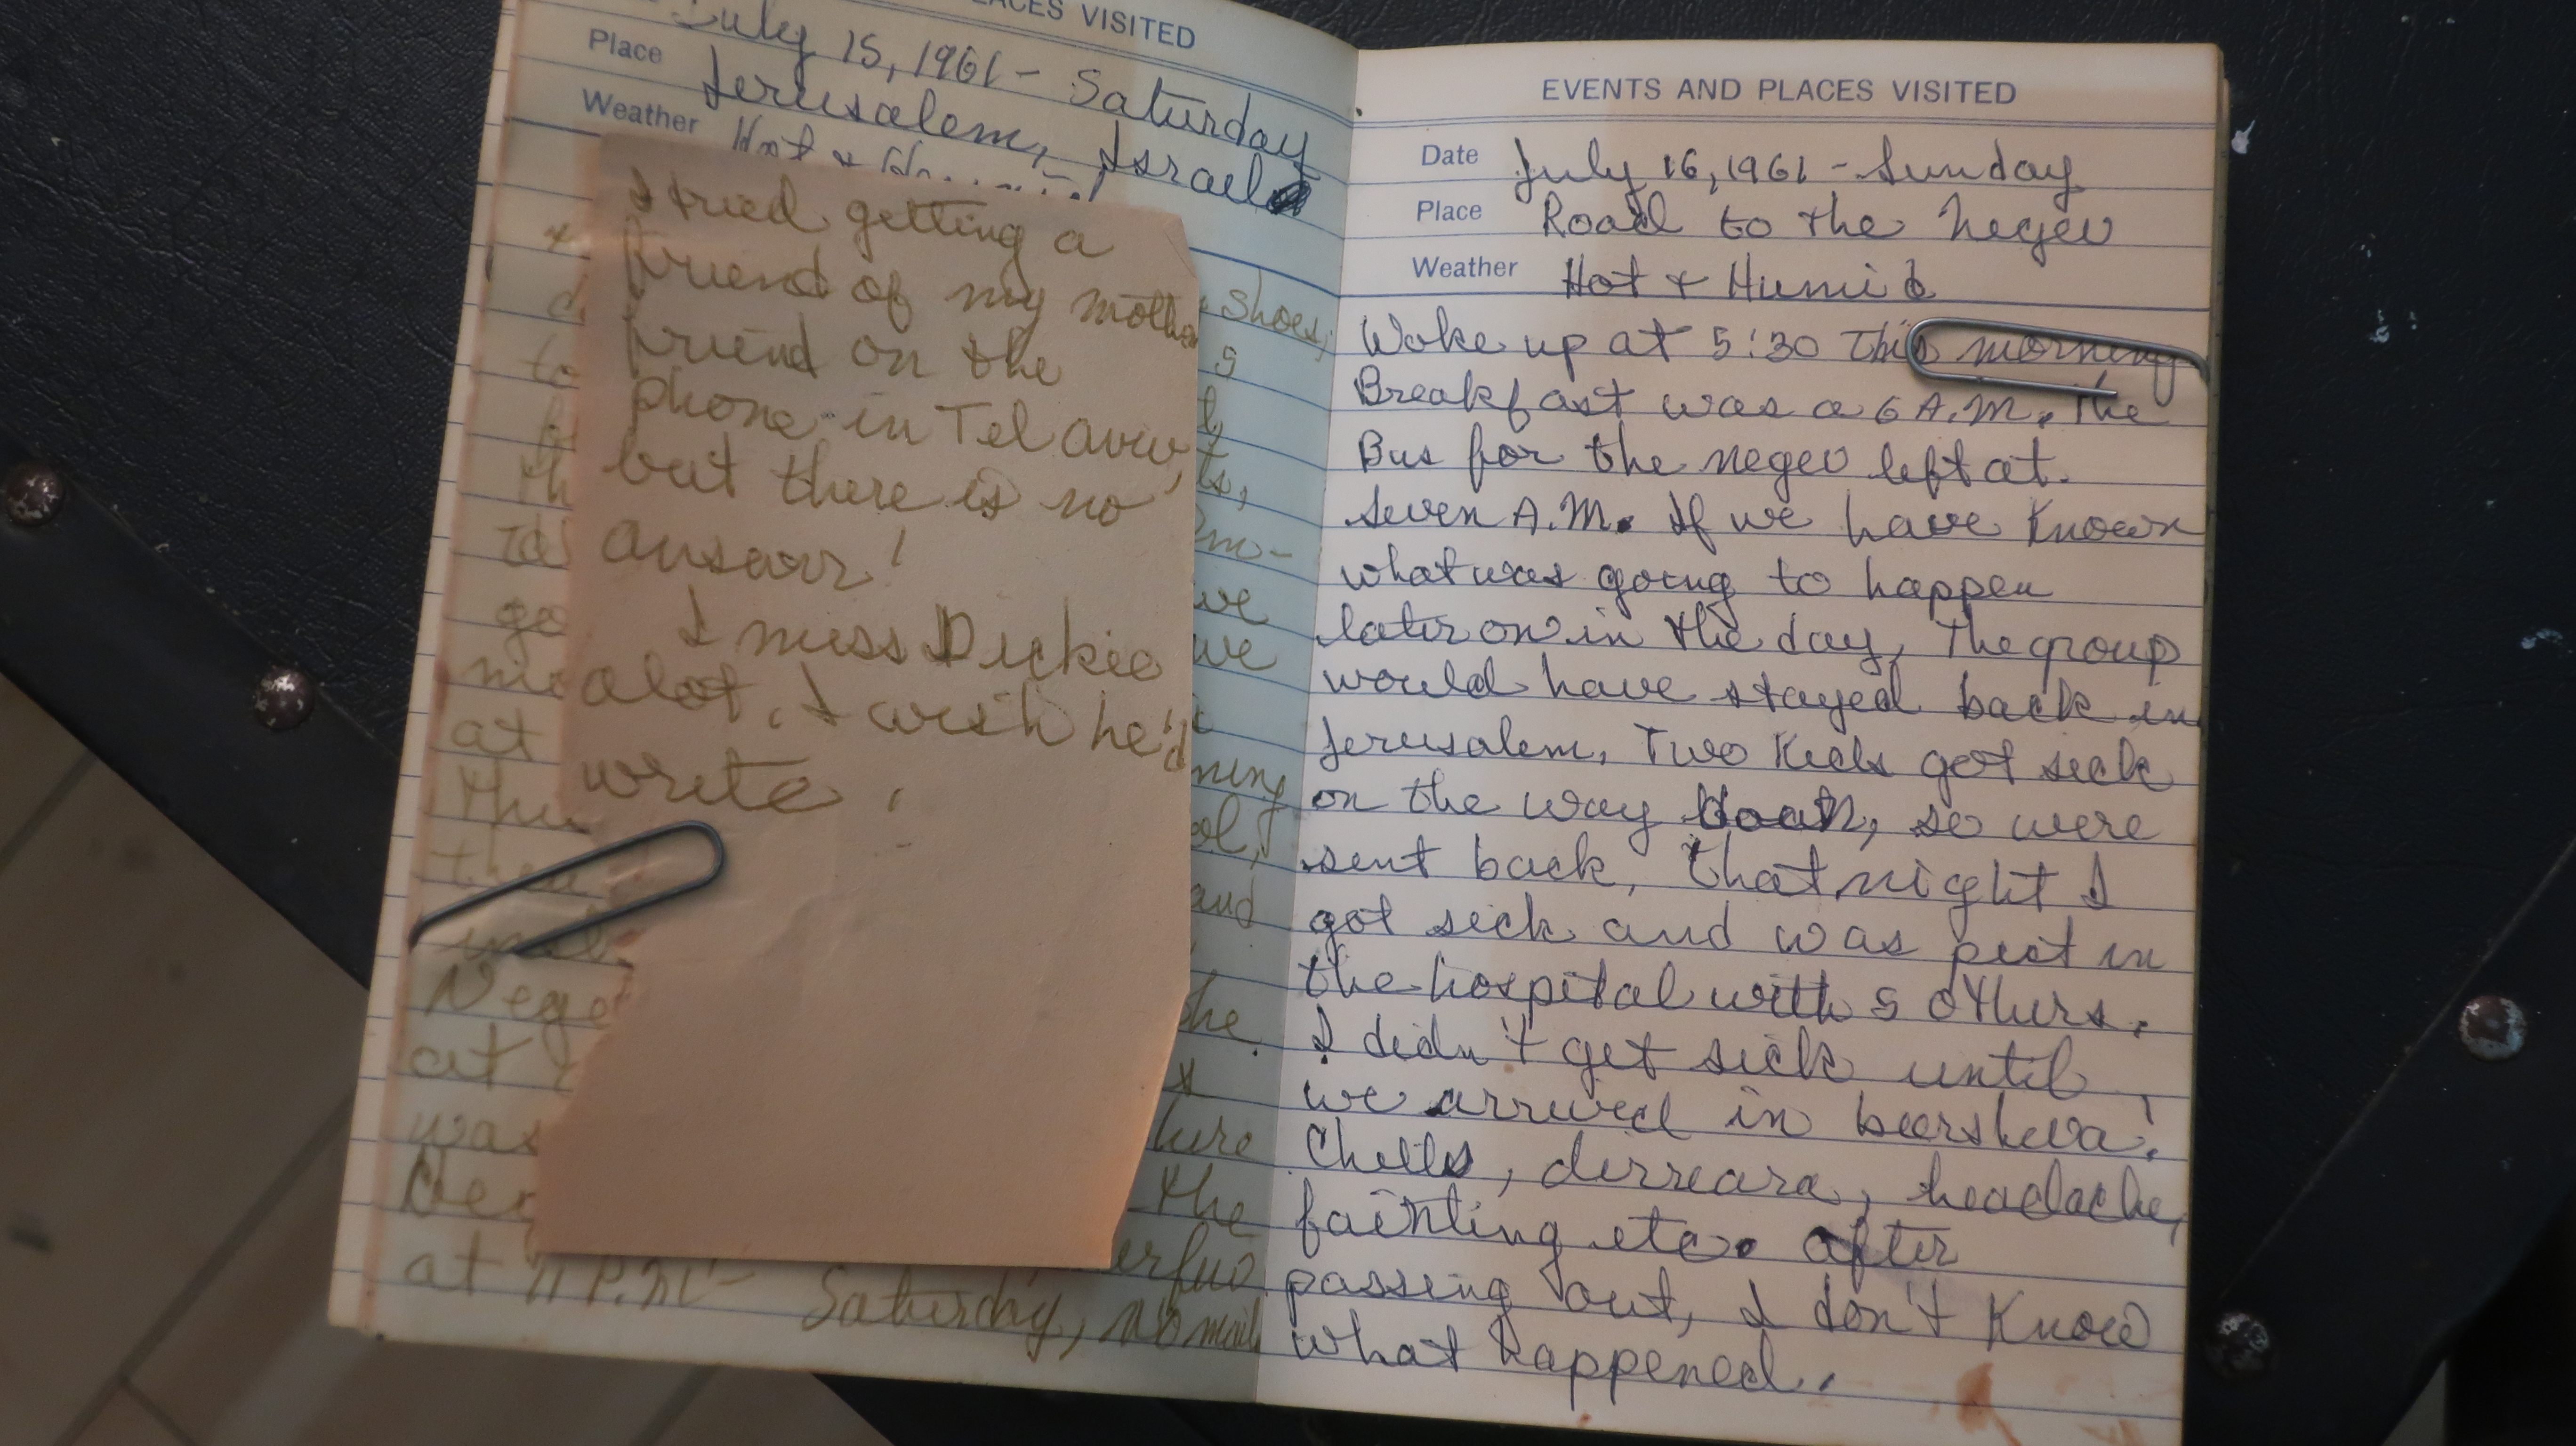 PLACES VISITED
July 15, 1961 - Saturday
Place Jerusalem, Israel
Weather Hot &
I tried getting a
friend of my mother
friend on the
phone in Tel aviv,
but there is no
answer!
I miss Dickie
alot. I wish he'd
write!
shoes,
5
to
go
we
me
we
at
ning
and
Nege
at
the
was
here
the
at 11 P.M. - Saturday, no mail
EVENTS AND PLACES VISITED
Date July 16, 1961 - Sunday
Place Road to the Negev
Weather Hot & Humid
Woke up at 5:30 This morning
Breakfast was a 6 A.M. The
Bus for the negev left at.
Seven A.M. If we have Known
what was going to happen
later on in the day, The group
would have stayed back in
Jerusalem. Two Kids got sick
on the way, so were
sent back, that night I
got sick and was put in
the hospital with 5 others.
I didn't get sick until
we arrived in beersheva!
Chills, dirreara, headache,
fainting etc. after
passing out, I don't Know
what happened.